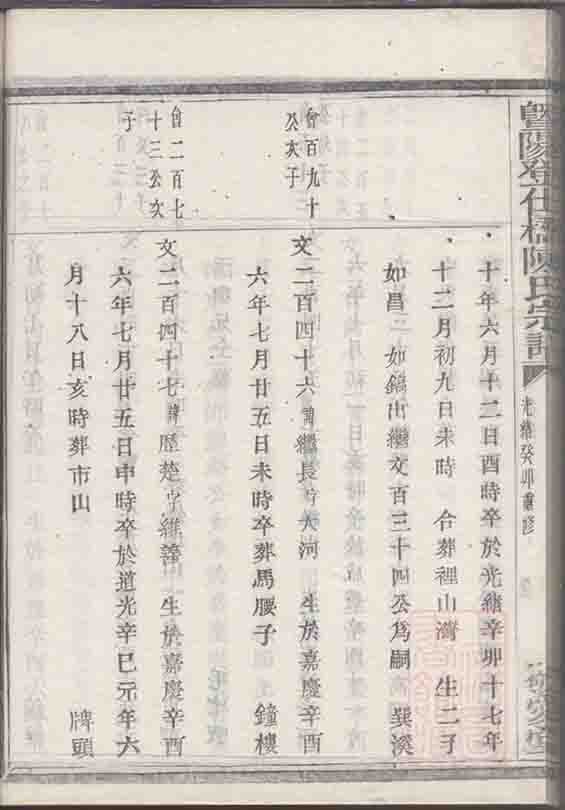 暨陽登仕橋陳氏宗譜
光緒癸卯重修
十年六月十二日酉時卒於光緒辛卯十七年
十二月初九日未時 合葬裡山灣 生二子
如昌 如鎬出繼文百三十四公為嗣 巽溪
會百九十
公次子
文二百四十六諱繼長 大河 生於嘉慶辛酉
六年七月廿五日未時卒葬馬腰子 鐘樓
會二百七
十三公次
子
文二百四十七諱歷楚字維善 生於嘉慶辛酉
六年七月廿五日申時卒於道光辛巳元年六
月十八日亥時葬市山 牌頭